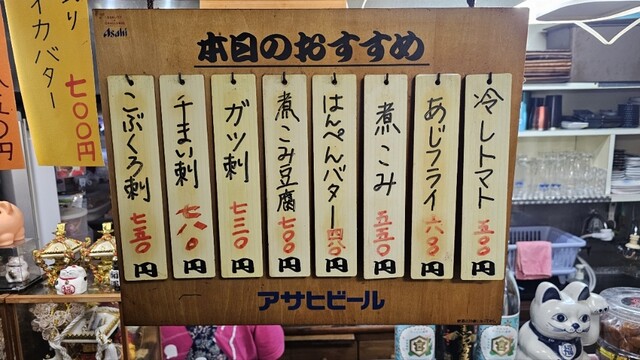 本日のおすすめ
Asahi
冷しトマト 五〇〇円
あじフライ 六〇〇円
煮こみ 五五〇円
はんぺんバター 四八〇円
煮こみ豆腐 七〇〇円
ガツ刺 七三〇円
千まい刺 七八〇円
こぶくろ刺 七五〇円
アサヒビール
イカバター 七〇〇円